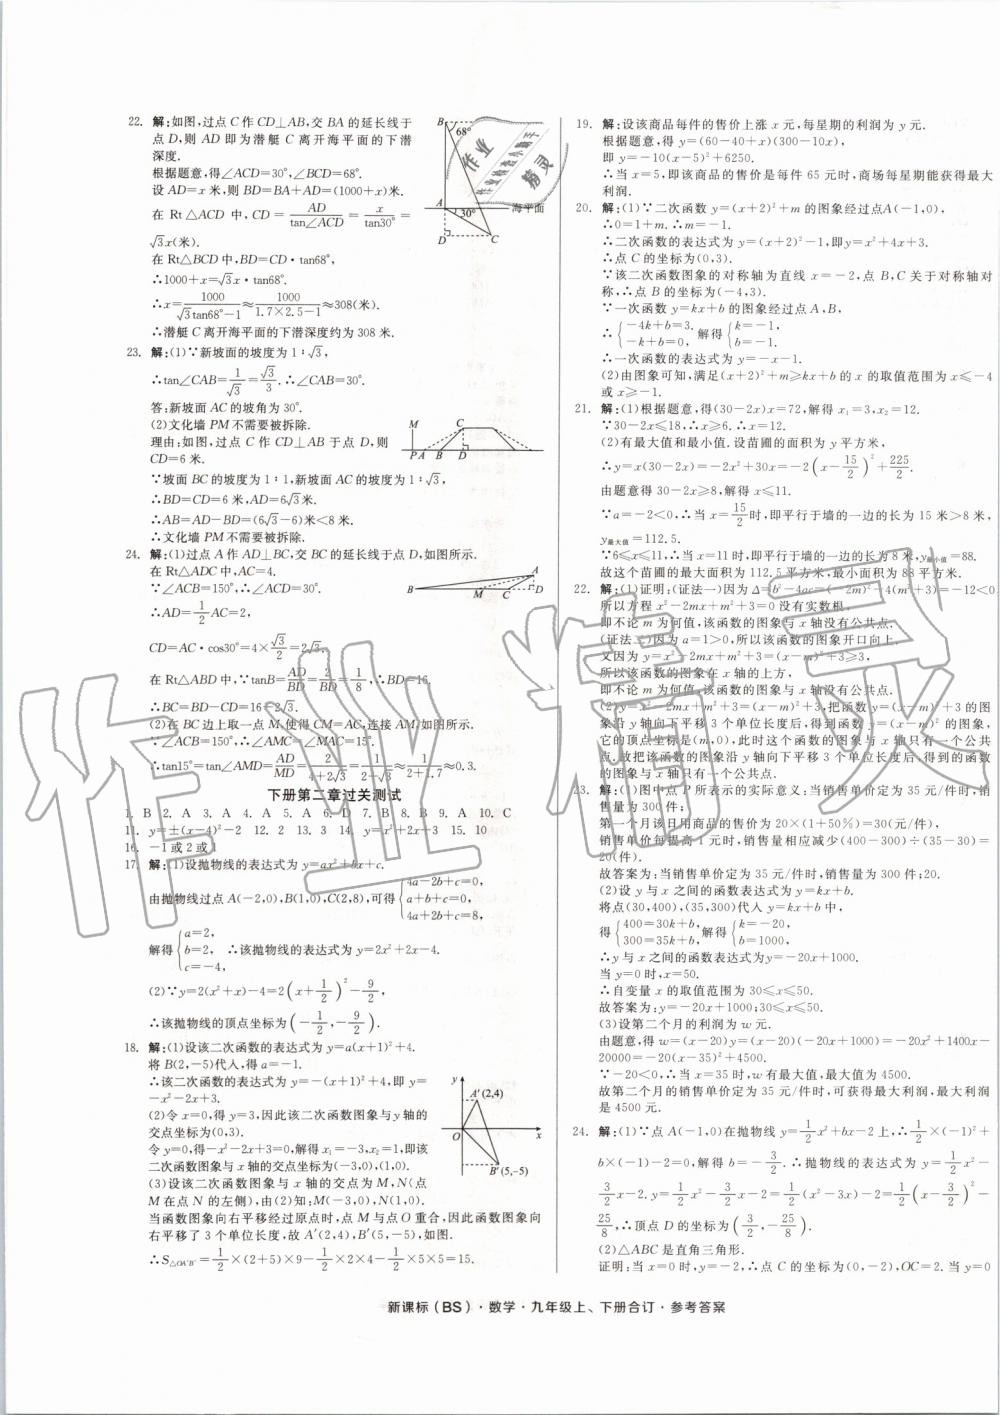 22. 解:如图,过点 C 作 CD⊥AB,交 BA 的延长线于
点 D,则 AD 即为潜艇 C 离开海平面的下潜
深度.
根据题意,得∠ACD=30°,∠BCD=68°.
设 AD=x 米,则 BD=BA+AD=(1000+x)米.
在 Rt△ACD 中,CD=AD/tan∠ACD=x/tan30°=
√3x(米).
在 Rt△BCD 中,BD=CD·tan68°,
∴1000+x=√3x·tan68°.
∴x=1000/(√3tan68°-1)≈1000/(1.7×2.5-1)≈308(米).
∴潜艇 C 离开海平面的下潜深度约为 308 米.
B 68° A 30° 海平面 D C
23. 解:(1)∵新坡面的坡度为 1∶√3,
∴tan∠CAB=1/√3=√3/3.∴∠CAB=30°.
答:新坡面 AC 的坡角为 30°.
(2)文化墙 PM 不需要被拆除.
理由:如图,过点 C 作 CD⊥AB 于点 D,则
CD=6 米.
∵坡面 BC 的坡度为 1∶1,新坡面 AC 的坡度为 1∶√3,
∴BD=CD=6 米,AD=6√3米.
∴AB=AD-BD=(6√3-6)米<8 米.
∴文化墙 PM 不需要被拆除.
M C P A B D
24. 解:(1)过点 A 作 AD⊥BC,交 BC 的延长线于点 D,如图所示.
在 Rt△ADC 中,AC=4.
∵∠ACB=150°,∴∠ACD=30°.
∴AD=1/2AC=2,
CD=AC·cos30°=4×√3/2=2√3.
在 Rt△ABD 中,∵tanB=AD/BD=2/BD=1/8,∴BD=16.
∴BC=BD-CD=16-2√3.
(2)在 BC 边上取一点 M,使得 CM=AC,连接 AM,如图所示.
∵∠ACB=150°,∴∠AMC=∠MAC=15°.
∴tan15°=tan∠AMD=AD/MD=2/(4+2√3)=1/(2+√3)≈1/(2+1.7)≈0.3.
A B M C D
下册第二章过关测试
1. B 2. A 3. A 4. A 5. A 6. D 7. B 8. B 9. A 10. C
11. y=±(x-4)²-2 12. 2 13. 3 14. y=x²+2x+3 15. 10
16. -1或2或1
17. 解:(1)设抛物线的表达式为 y=ax²+bx+c.
由抛物线过点 A(-2,0),B(1,0),C(2,8),可得{4a-2b+c=0, a+b+c=0, 4a+2b+c=8,
解得{a=2, b=2, c=-4, ∴该抛物线的表达式为 y=2x²+2x-4.
(2)∵y=2(x²+x)-4=2(x+1/2)²-9/2,
∴该抛物线的顶点坐标为(-1/2,-9/2).
18. 解:(1)设该二次函数的表达式为 y=a(x+1)²+4.
将 B(2,-5)代入,得 a=-1.
∴该二次函数的表达式为 y=-(x+1)²+4,即 y=
-x²-2x+3.
(2)令 x=0,得 y=3,因此该二次函数图象与 y 轴的
交点坐标为(0,3).
令 y=0,得-x²-2x+3=0,解得 x₁=-3,x₂=1,即该
二次函数图象与 x 轴的交点坐标为(-3,0),(1,0).
(3)设该二次函数图象与 x 轴的交点为 M,N(点
M 在点 N 的左侧),由(2)知:M(-3,0),N(1,0).
当函数图象向右平移经过原点时,点 M 与点 O 重合,因此函数图象向
右平移了 3 个单位长度,故 A′(2,4),B′(5,-5),如图.
∴S△OA′B′=1/2×(2+5)×9-1/2×2×4-1/2×5×5=15.
y A′(2,4) O x B′(5,-5)
19. 解:设该商品每件的售价上涨 x 元,每星期的利润为 y 元.
根据题意,得 y=(60-40+x)(300-10x),
即 y=-10(x-5)²+6250.
∴当 x=5,即该商品的售价是每件 65 元时,商场每星期能获得最大
利润.
20. 解:(1)∵二次函数 y=(x+2)²+m 的图象经过点A(-1,0),
∴0=1+m.∴m=-1.
∴二次函数的表达式为 y=(x+2)²-1,即y=x²+4x+3.
∴点 C 的坐标为(0,3).
∵该二次函数图象的对称轴为直线 x=-2,点 B,C 关于对称轴对
称,∴点 B 的坐标为(-4,3).
∵一次函数 y=kx+b 的图象经过点 A,B,
∴{-4k+b=3, -k+b=0, 解得{k=-1, b=-1.
∴一次函数的表达式为 y=-x-1.
(2)由图象可知,满足(x+2)²+m≥kx+b 的 x 的取值范围为 x≤-4
或 x≥-1.
21. 解:(1)根据题意,得(30-2x)x=72,解得 x₁=3,x₂=12.
∵30-2x≤18,∴x≥6.∴x=12.
(2)有最大值和最小值.设苗圃的面积为 y 平方米,
∴y=x(30-2x)=-2x²+30x=-2(x-15/2)²+225/2.
由题意得 30-2x≥8,解得 x≤11.
∵a=-2<0,∴当 x=15/2时,即平行于墙的一边的长为 15 米>8 米,
y最大值=112.5.
∵6≤x≤11,∴当 x=11 时,即平行于墙的一边的长为 8 米,y最小值=88.
故这个苗圃的最大面积为 112.5 平方米,最小面积为 88 平方米.
22. 解:(1)证明:(证法一)因为 Δ=b²-4ac=(-2m)²-4(m²+3)=-12<0,
所以方程 x²-2mx+m²+3=0 没有实数根.
即不论 m 为何值,该函数的图象与 x 轴没有公共点.
(证法二)因为 a=1>0,所以该函数的图象开口向上.
又因为 y=x²-2mx+m²+3=(x-m)²+3≥3,
所以该函数的图象在 x 轴的上方,
即不论 m 为何值,该函数的图象与 x 轴没有公共点.
(2)y=x²-2mx+m²+3=(x-m)²+3,把函数 y=(x-m)²+3 的图
象沿 y 轴向下平移 3 个单位长度后,得到函数 y=(x-m)² 的图象,
它的顶点坐标是(m,0),此时这个函数的图象与 x 轴只有一个公共
点.故把该函数的图象沿 y轴向下平移 3 个单位长度后,得到的函数
的图象与 x 轴只有一个公共点.
23. 解:(1)图中点 P 所表示的实际意义:当销售单价定为 35 元/件时,销
售量为 300 件;
第一个月该日用商品的售价为 20×(1+50%)=30(元/件),
销售单价每提高 1 元时,销售量相应减少(400-300)÷(35-30)=
20(件).
故答案为:当销售单价定为 35 元/件时,销售量为 300 件;20.
(2)设 y 与 x 之间的函数表达式为 y=kx+b.
将点(30,400),(35,300)代入 y=kx+b 中,
得{400=30k+b, 300=35k+b, 解得{k=-20, b=1000,
∴y 与 x 之间的函数表达式为 y=-20x+1000.
当 y=0 时,x=50.
∴自变量 x 的取值范围为 30≤x≤50.
故答案为:y=-20x+1000;30≤x≤50.
(3)设第二个月的利润为 w 元.
由题意,得 w=(x-20)y=(x-20)(-20x+1000)=-20x²+1400x-
20000=-20(x-35)²+4500.
∵-20<0,∴当 x=35 时,w 有最大值,最大值为 4500.
故第二个月的销售单价定为 35 元/件时,可获得最大利润,最大利润
是 4500 元.
24. 解:(1)∵点 A(-1,0)在抛物线 y=1/2x²+bx-2 上,∴1/2×(-1)²+
b×(-1)-2=0,解得 b=-3/2.∴抛物线的表达式为 y=1/2x²-
3/2x-2.y=1/2x²-3/2x-2=1/2(x²-3x)-2=1/2(x-3/2)²-
25/8,∴顶点 D 的坐标为(3/2,-25/8).
(2)△ABC 是直角三角形.
证明:当 x=0 时,y=-2,∴点 C 的坐标为(0,-2),OC=2.当 y=0
新课标(BS)·数学·九年级上、下册合订·参考答案
作业精灵